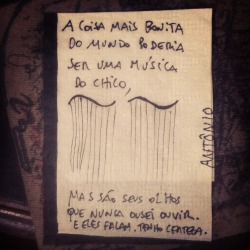 A COISA MAIS BONITA
DO MUNDO PODERIA
SER UMA MÚSICA
DO CHICO,
MAS SÃO SEUS OLHOS
QUE NUNCA OUSEI OUVIR.
E ELES FALAM. TENHO CERTEZA.
ANTÔNIO